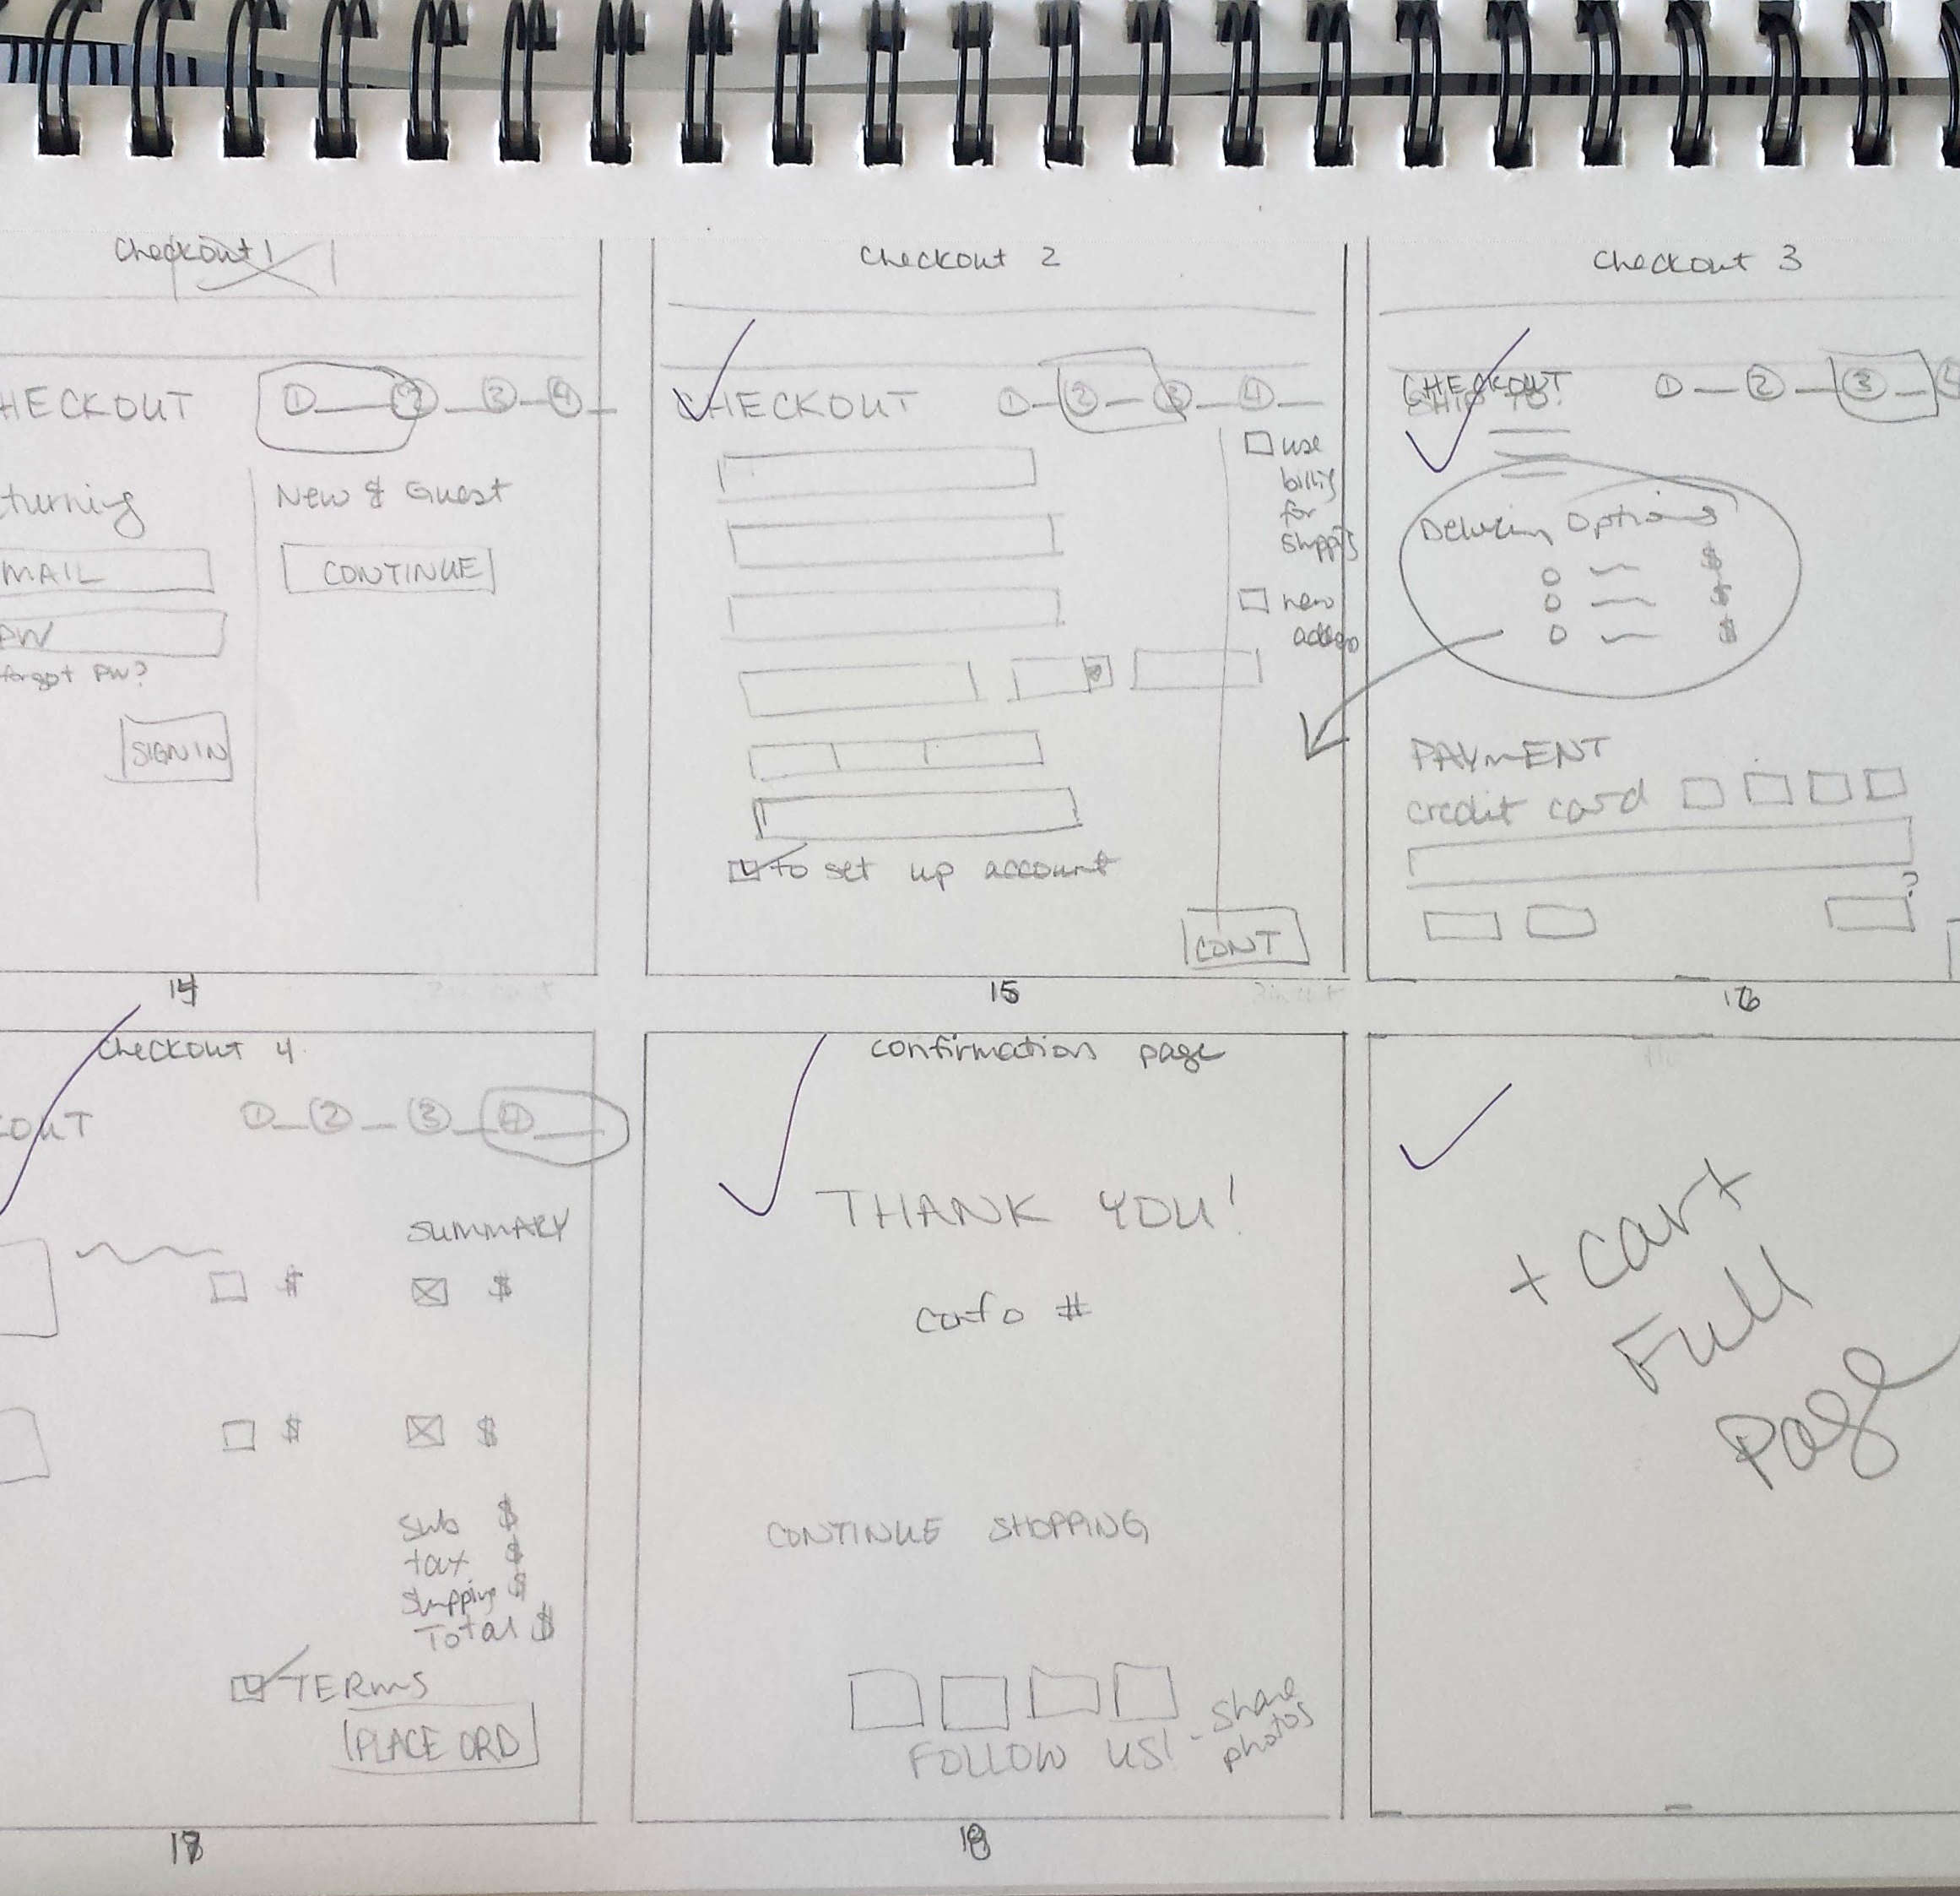 Checkout 1
HECKOUT
1 2 3 4
turning
New & Guest
MAIL
CONTINUE
PW
forgot PW?
SIGN IN
14
Checkout 2
CHECKOUT
1 2 3 4
use
for
new
to set up account
CONT
15
Checkout 3
CHECKOUT
SHIP TO:
1 2 3 4
Options
$
$
$
PAYMENT
credit card
?
16
Checkout 4
OUT
1 2 3 4
SUMMARY
$ $
$ $
Sub $
tax $
Shipping $
Total $
TERMS
PLACE ORD
17
confirmation page
THANK YOU!
#
CONTINUE SHOPPING
FOLLOW US! - Share
photos
+ cart
Full
Page